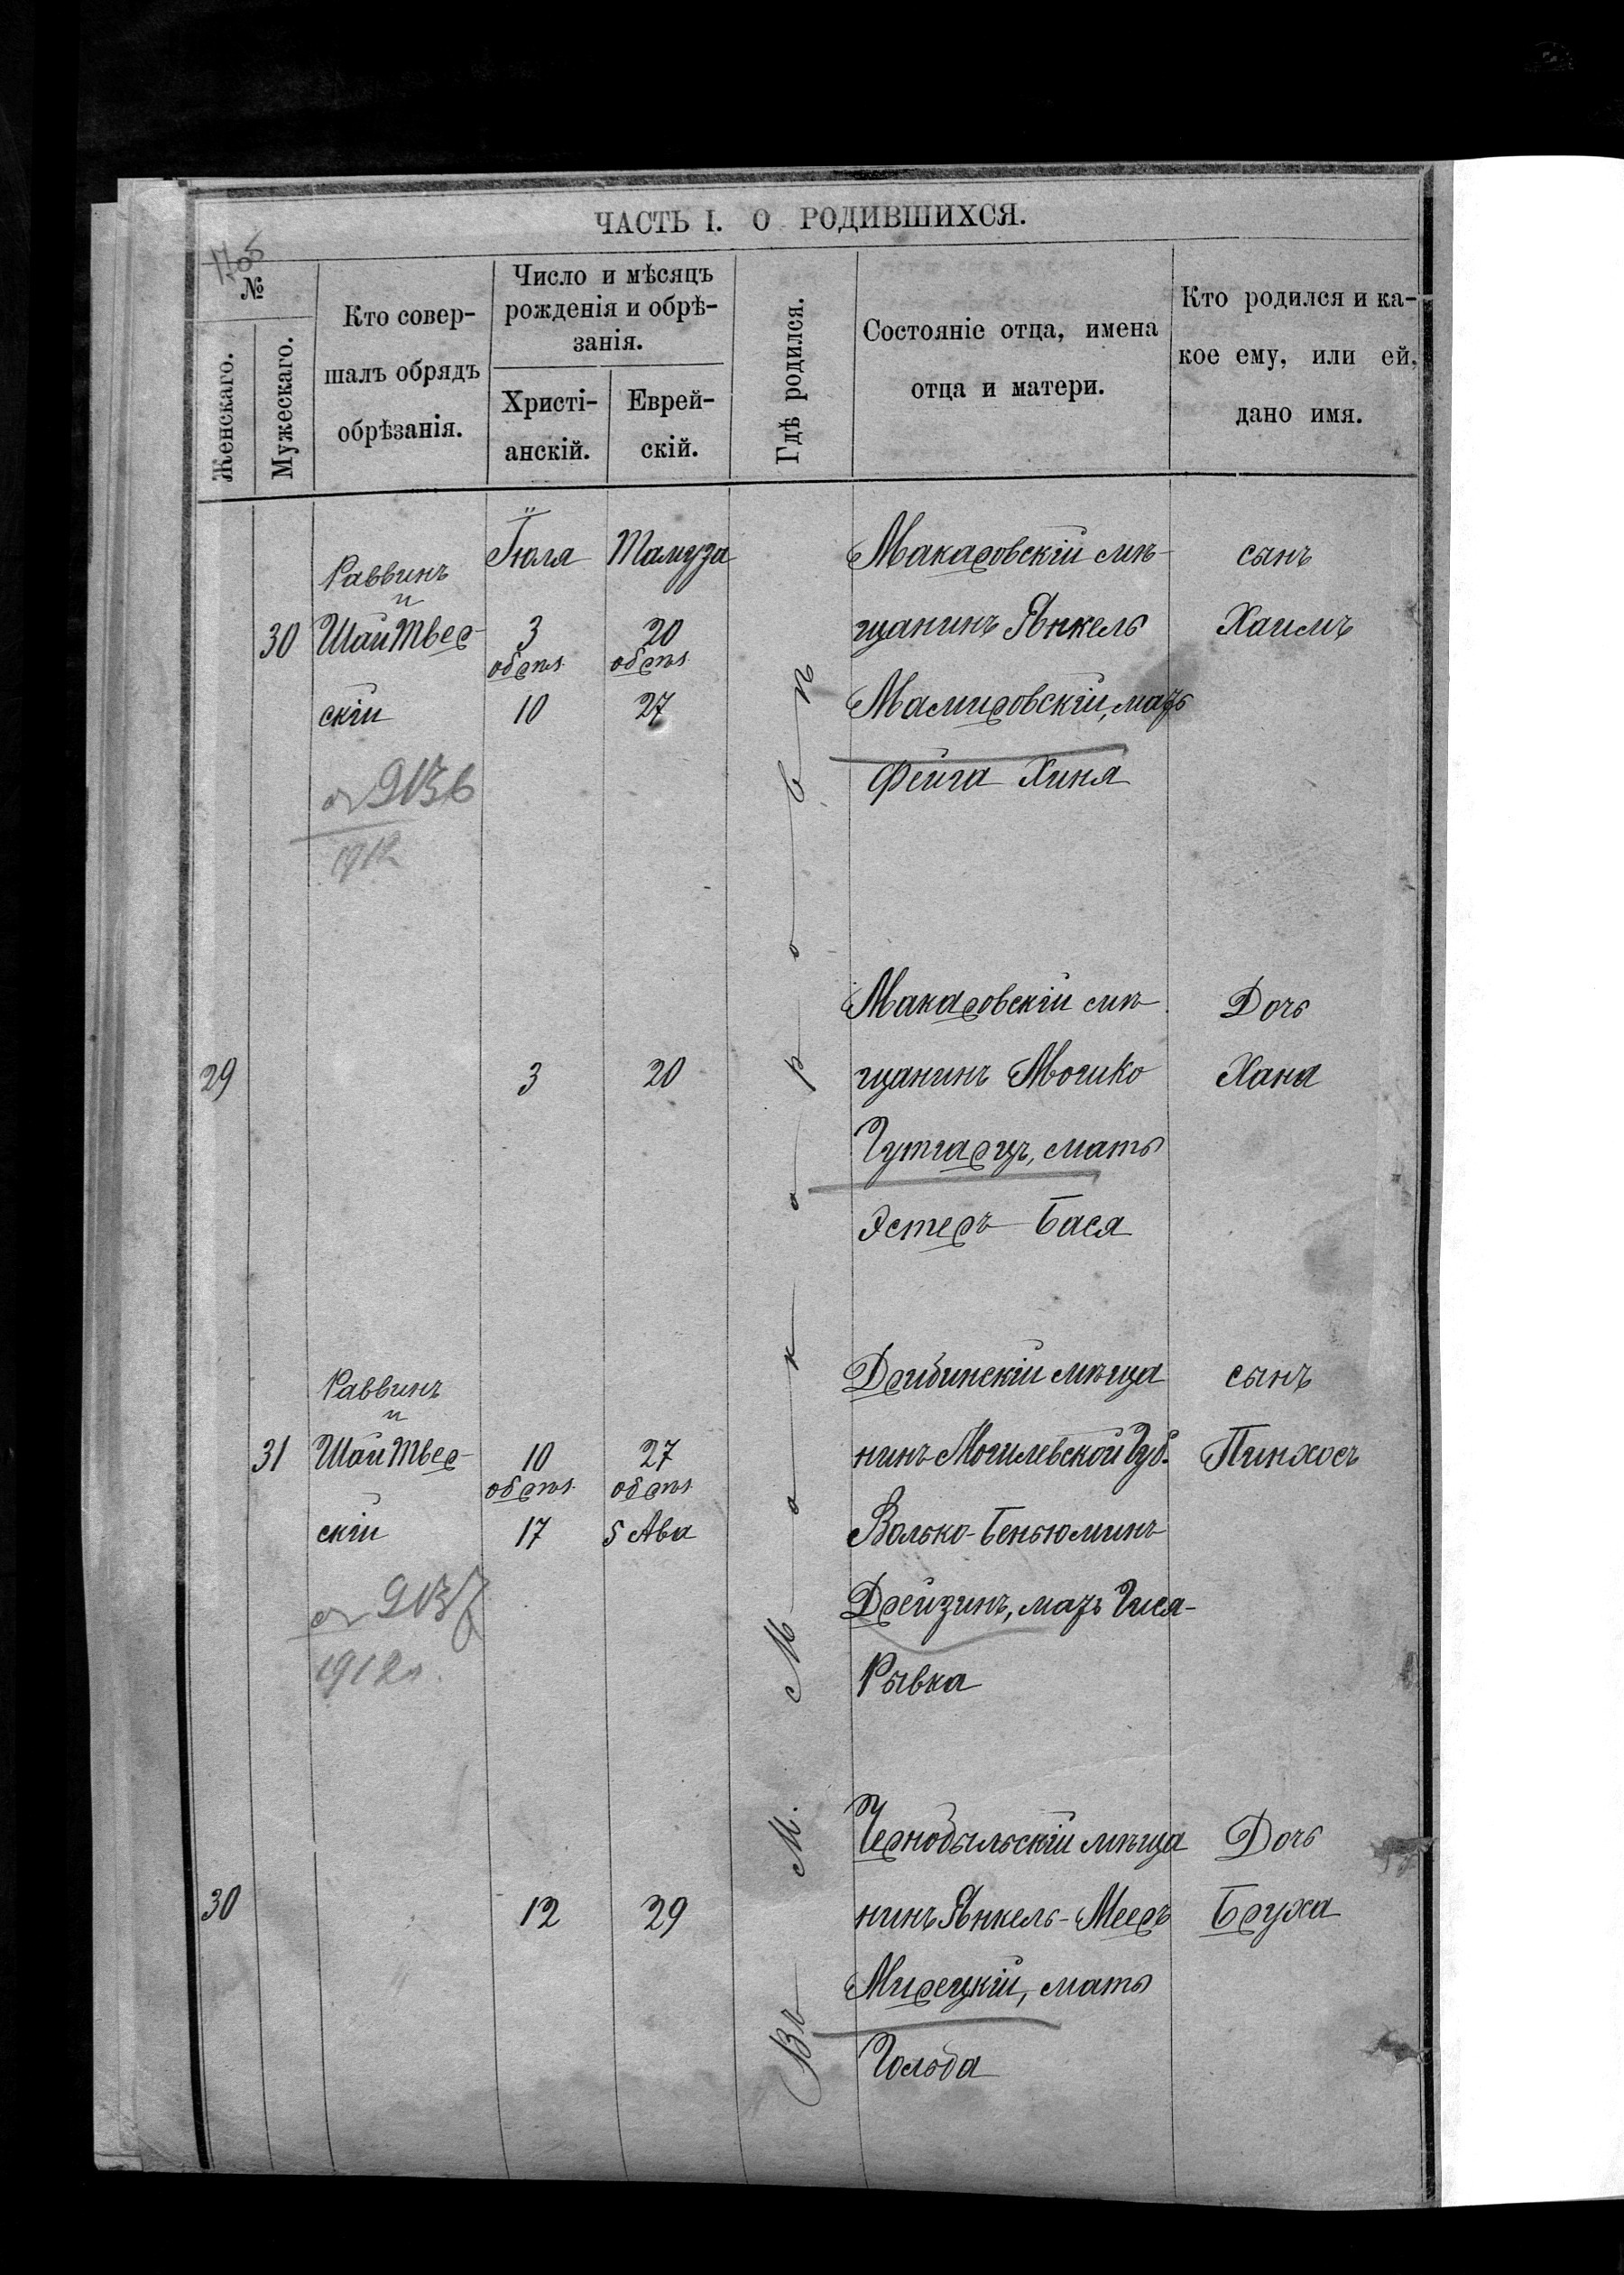 ЧАСТЬ I. О РОДИВШИХСЯ.
№
Женскаго.
Мужескаго.
Кто совер-
шалъ обрядъ
обрѣзанія.
Число и мѣсяцъ
рожденія и обрѣ-
занія.
Христі-
анскій.
Еврей-
скій.
Гдѣ родился.
Состояніе отца, имена
отца и матери.
Кто родился и ка-
кое ему, или ей,
дано имя.
Въ М. Макаровѣ
Раввинъ
и
30 Шай Твер-
скій
Іюля
3
обрѣз.
10
Тамуза
20
обрѣз.
27
Макаровскій мѣ-
щанинъ Янкель
Мамировскій, мать
Фейга Хиня
сынъ
Хаимъ
№ 2136
1912
29
3
20
Макаровскій мѣ-
щанинъ Мошко
Гутгарцъ, мать
Эстеръ Бася
Дочь
Хана
Раввинъ
и
31 Шай Твер-
скій
10
обрѣз.
17
27
обрѣз.
5 Ава
Дрибинскій мѣща
нинъ Могилевской Губ.
Волько-Беньюминъ
Дрейзинъ, мать Гися-
Рывка
сынъ
Пинхосъ
№ 2137
1912 г.
30
12
29
Чернобыльскій мѣща
нинъ Янкель-Мееръ
Мирецкій, мать
Гольда
Дочь
Бруха